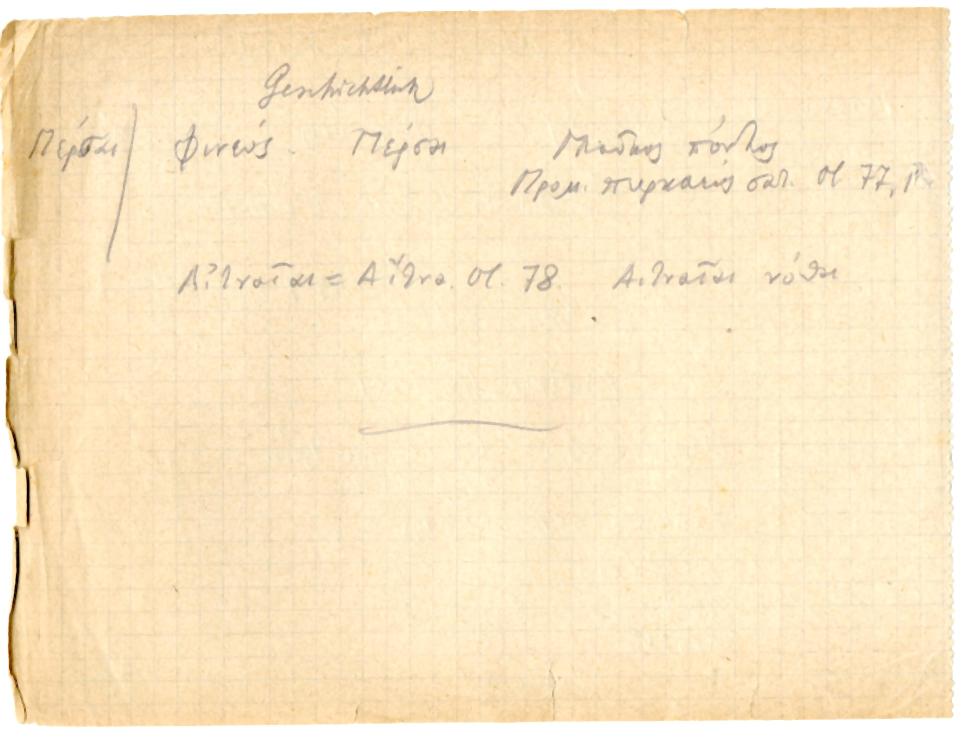 Geschichtlich
Πέρσαι / Φινεύς. Πέρσαι Γλαῦκος πόντιος
Προμ. πυρκαεύς σατ. Ol 77,
Αἰτναῖαι = Αἴτνα. Ol. 78. Αἰτναῖαι νόθοι